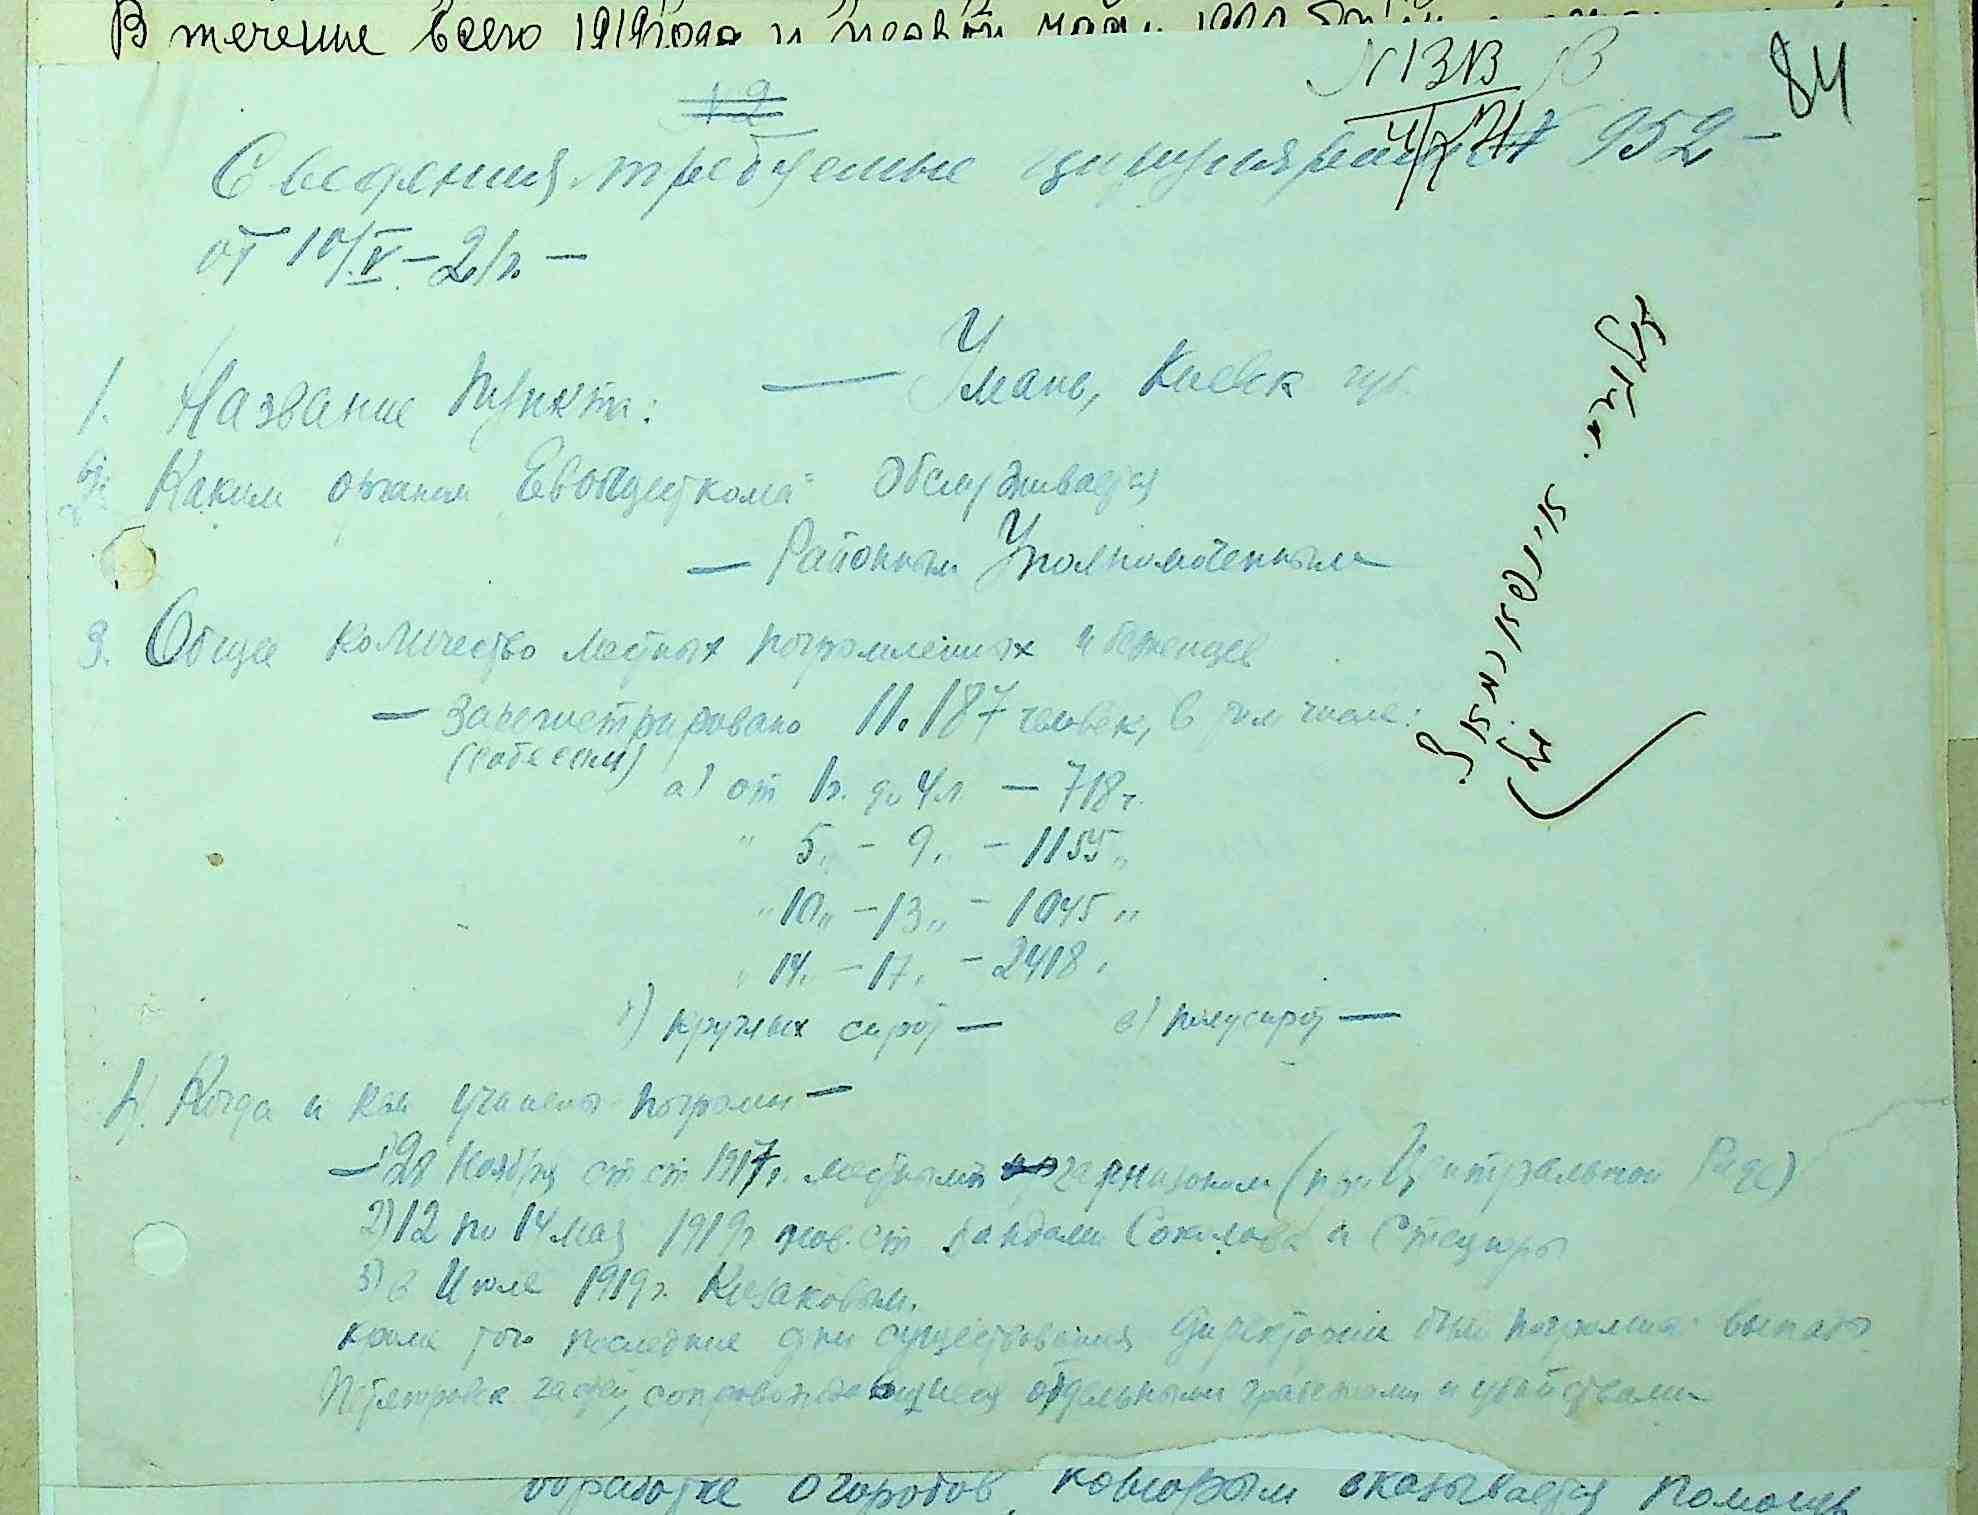 В течение всего 1919 года и первой
N 13В
84
N2
Сведения требуемые циркуляром N 952 —
от 10/V — 21 г. —
1. Название пункта: — Умань, Киевск губ.
2. Каким органом Евобщесткома обслуживается
— Районным Уполномоченным
3. Общее количество местных погромленных и беженцев
— зарегистрировано 11.187 человек, в том числе:
(собесом)
а) от 1 г. до 4 л. — 718 ч.
" 5 " — 9 " — 1155 "
" 10 " — 13 " — 1045 "
" 14 " — 17 " — 2418 "
б) круглых сирот — в) полусирот —
4. Когда и кем учинены погромы —
— 1) 28 Ноября ст ст 1917 г. местным гарнизоном (при Центральной Раде)
2) 12 по 14 мая 1919 г нов. ст бандами Соколова и Стецюры
3) в Июле 1919 г. Казаковым.
кроме того последние дни существования Директории были погромы
Петлюровск частей, сопровождавшиеся отдельными грабежами и убийствами
обработке огородов, которым оказывается помощь